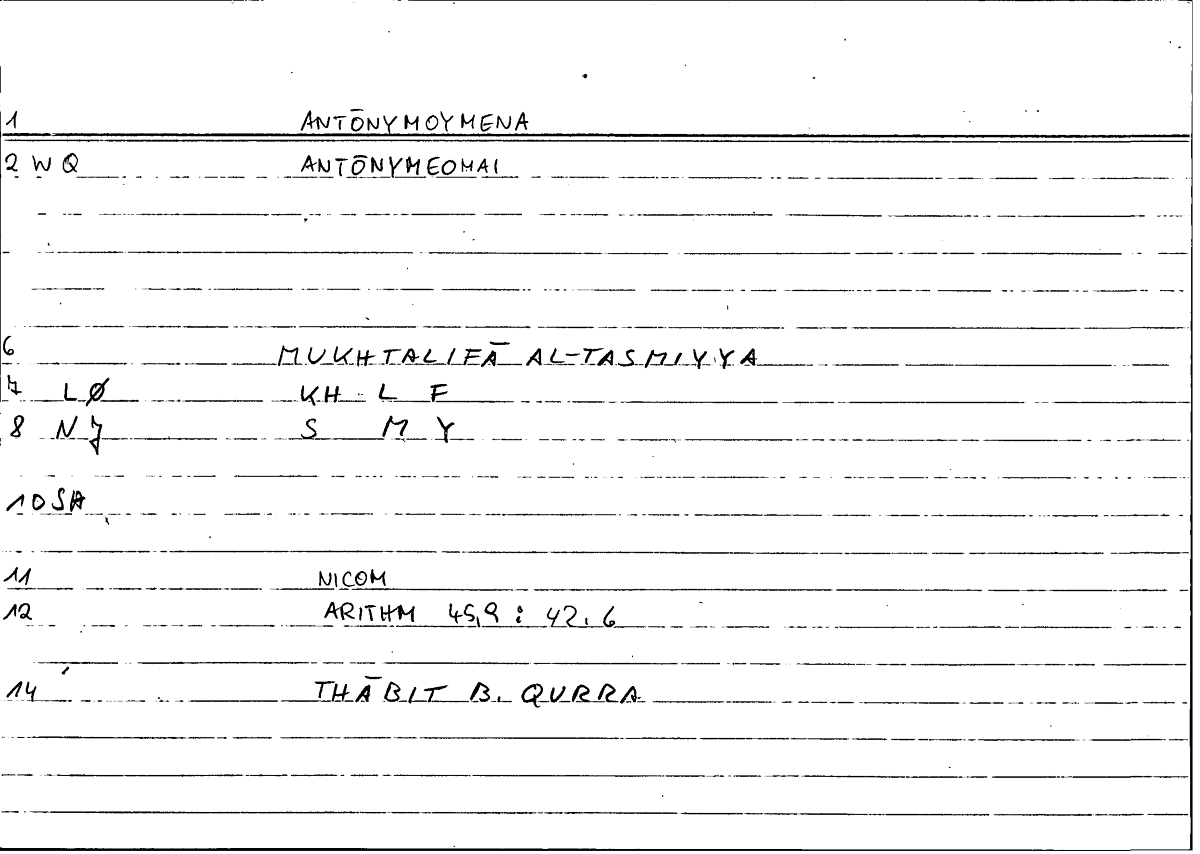 1 ANTŌNYMOYMENA
2 W Q ANTŌNYMEOMAI
6 MUKHTALIFĀ AL-TASMIYYA
7 LØ KH L F
8 NJ S M Y
10 SA
11 NICOM
12 ARITHM 45,9 : 42,6
14 THĀBIT B. QURRA